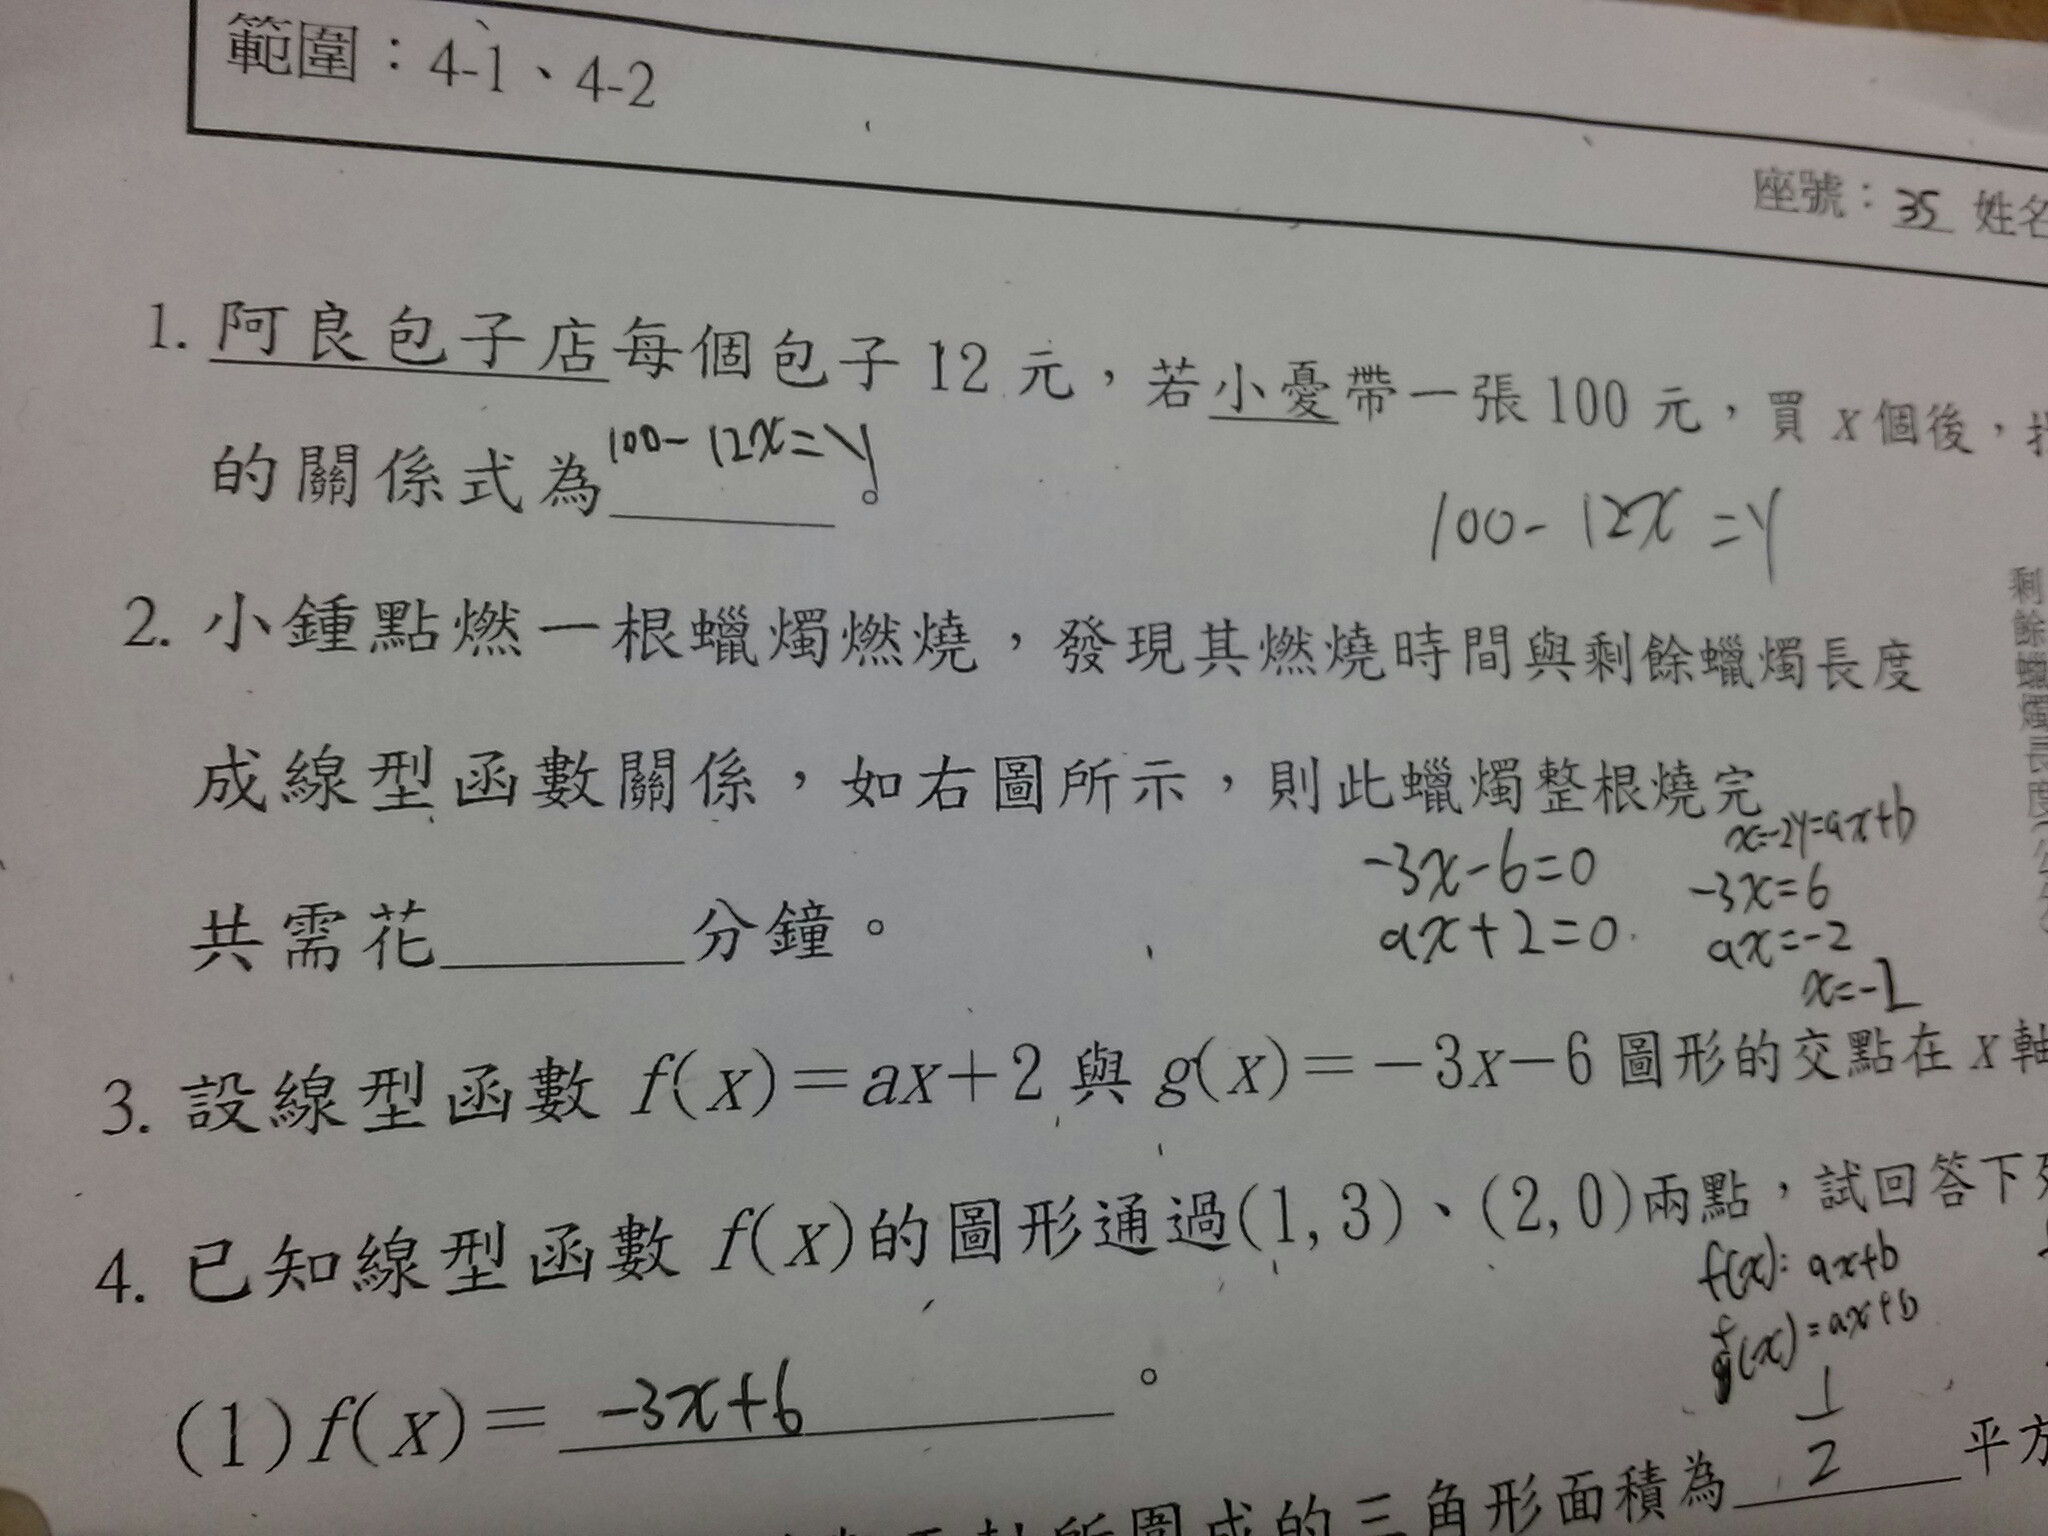 範圍：4-1、4-2
座號：35 姓名
1. 阿良包子店每個包子 12 元，若小憂帶一張 100 元，買 x 個後，找
的關係式為 100-12x=y 。
100-12x=y
2. 小鍾點燃一根蠟燭燃燒，發現其燃燒時間與剩餘蠟燭長度
成線型函數關係，如右圖所示，則此蠟燭整根燒完
共需花______分鐘。
剩餘蠟燭長度(公分
-3x-6=0
ax+2=0
x=-2y=ax+b
-3x=6
ax=-2
3. 設線型函數 f(x)=ax+2 與 g(x)=-3x-6 圖形的交點在 x 軸
4. 已知線型函數 f(x)的圖形通過(1,3)、(2,0)兩點，試回答下列
f(x)=ax+b
(x)=ax+b
(1) f(x)= -3x+6 。
所圍成的三角形面積為 1/2 平方